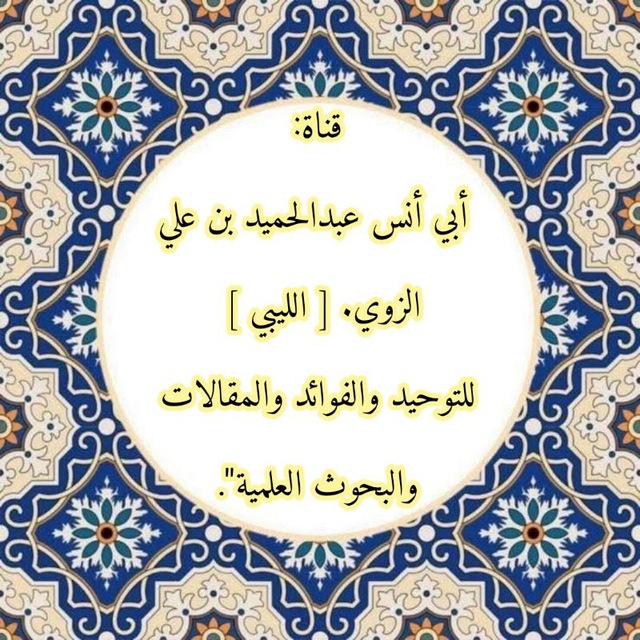 قناة:
أبي أنس عبدالحميد بن علي
الزوي. [ الليبي ]
للتوحيد والفوائد والمقالات
والبحوث العلمية".